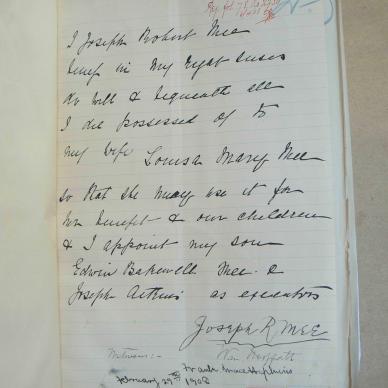 I Joseph Robert Mee
being in my right senses
do will & bequeath all
I die possessed of to
my wife Louisa Mary Mee
so that she may use it for
her benefit & our children
& I appoint my son
Edwin Bakewell Mee &
Joseph Atkins as executors
Joseph R Mee
Witness:-
Frank Hopkins
February 29th 1908